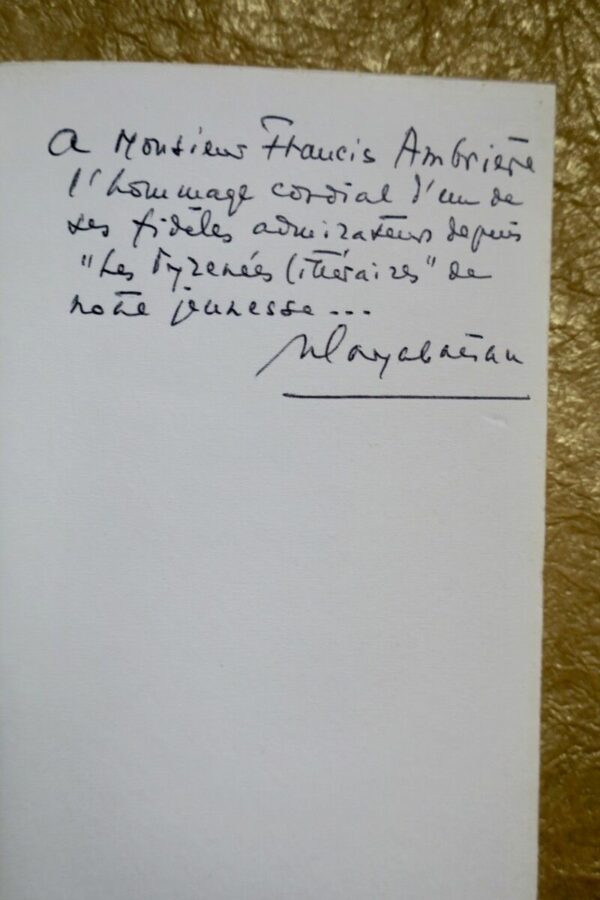 A Monsieur Francis Ambrière
l'hommage cordial d'un de
ses fidèles admirateurs depuis
"Les Pyrenées littéraires" de
notre jeunesse...